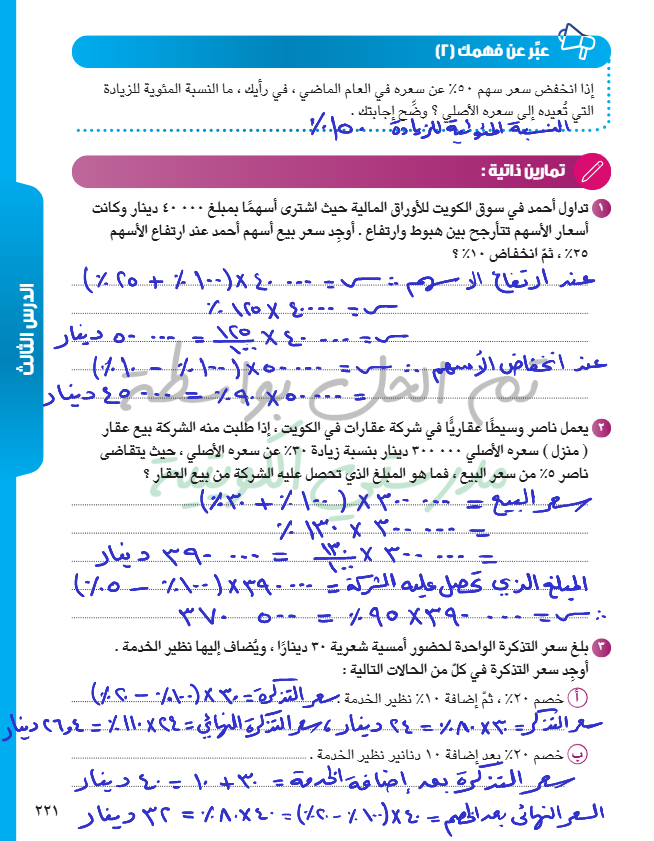 عبّر عن فهمك (٢)
إذا انخفض سعر سهم ٥٠٪ عن سعره في العام الماضي ، في رأيك ، ما النسبة المئوية للزيادة
التي تُعيده إلى سعره الأصلي ؟ وضّح إجابتك .
النسبة المئوية للزيادة ١٥٠٪
تمارين ذاتية :
١ تداول أحمد في سوق الكويت للأوراق المالية حيث اشترى أسهمًا بمبلغ ٠٠٠ ٤٠ دينار وكانت
أسعار الأسهم تتأرجح بين هبوط وارتفاع . أوجد سعر بيع أسهم أحمد عند ارتفاع الأسهم
٢٥٪ ، ثمّ انخفاض ١٠٪ ؟
عند ارتفاع الاسهم ∴ س = ٤٠٠٠٠ × (١٠٠٪ + ٢٥٪)
س = ٤٠٠٠٠ × ١٢٥٪
س = ٤٠٠٠٠ × ١٢٥/١٠٠ = ٥٠٠٠٠ دينار
عند انخفاض الأسهم ∴ س = ٥٠٠٠٠ × (١٠٠٪ − ١٠٪)
= ٥٠٠٠٠ × ٩٠٪ = ٤٥٠٠٠ دينار
تم الحل بواسطة
٢ يعمل ناصر وسيطًا عقاريًّا في شركة عقارات في الكويت ، إذا طلبت منه الشركة بيع عقار
( منزل ) سعره الأصلي ٠٠٠ ٣٠٠ دينار بنسبة زيادة ٣٠٪ عن سعره الأصلي ، حيث يتقاضى
ناصر ٥٪ من سعر البيع ، فما هو المبلغ الذي تحصل عليه الشركة من بيع العقار ؟
مدرستي الكويتية
سعر البيع = ٣٠٠٠٠٠ × (١٠٠٪ + ٣٠٪)
= ٣٠٠٠٠٠ × ١٣٠٪
= ٣٠٠٠٠٠ × ١٣٠/١٠٠ = ٣٩٠٠٠٠ دينار
المبلغ الذي تحصل عليه الشركة = ٣٩٠٠٠٠ × (١٠٠٪ − ٥٪)
∴ س = ٣٩٠٠٠٠ × ٩٥٪ = ٣٧٠ ٥٠٠
٣ بلغ سعر التذكرة الواحدة لحضور أمسية شعرية ٣٠ دينارًا ، ويُضاف إليها نظير الخدمة .
أوجد سعر التذكرة في كلّ من الحالات التالية :
أ خصم ٢٠٪ ، ثمّ إضافة ١٠٪ نظير الخدمة . سعر التذكرة = ٣٠ × (١٠٠٪ − ٢٠٪)
سعر التذكر = ٣٠ × ٨٠٪ = ٢٤ دينار ، سعر التذكرة النهائي = ٢٤ × ١١٠٪ = ٢٦,٤ دينار
ب خصم ٢٠٪ بعد إضافة ١٠ دنانير نظير الخدمة .
سعر التذكرة بعد إضافة الخدمة = ٣٠ + ١٠ = ٤٠ دينار
السعر النهائي بعد الخصم = ٤٠ × (١٠٠٪ − ٢٠٪) = ٤٠ × ٨٠٪ = ٣٢ دينار
الدرس الثالث
٢٢١